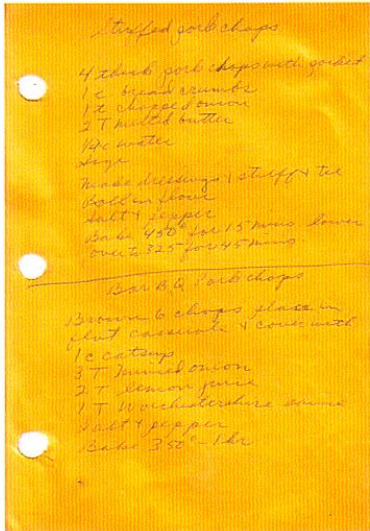 Stuffed pork chops
4 thick pork chops with pocket
1 c bread crumbs
1 t chopped onion
2 T melted butter
1/4 c water
Sage
Made dressings & stuff & tie
Roll in flour
Salt & pepper
Bake 450° for 15 mins lower
oven to 325° for 45 mins.
Bar B Q Pork chops
Brown 6 chops place in
flat casserole & cover with
1 c catsup
3 T minced onion
2 T lemon juice
1 T Worchestershire sauce
Salt & pepper
Bake 350° - 1 hr